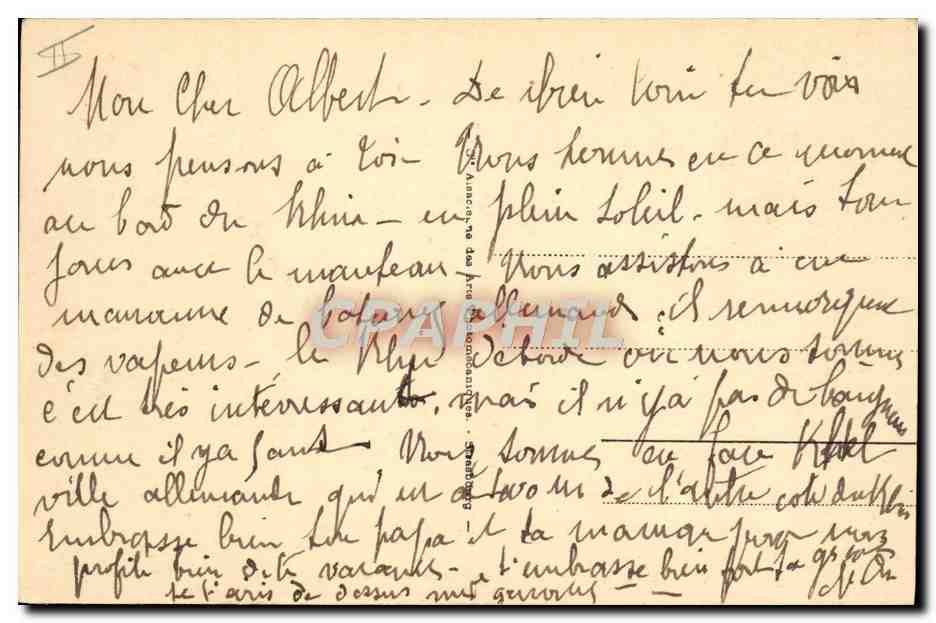 II
Mon Cher Albert - De bien loin tu vois
nous pensons à toi - Nous sommes en ce moment
au bord du Rhin - en plein soleil - mais tou
jours avec le manteau - Nous assistons à une
manœuvre de bateaux allemands, il remorquent
des vapeurs - le Rhin déborde où nous sommes
c'est très intéressant, mais il n'y a pas de baigneurs
comme il y a
Nous sommes en face Khel
ville allemande qui est de l'autre coté du Rhin
Embrasse bien ton papa et ta maman pour nous
profite bien de tes vacances - t'embrasse bien fort ta
de dessus
Alsacienne des Arts Photomécaniques. - Strasbourg
CPAPHIL